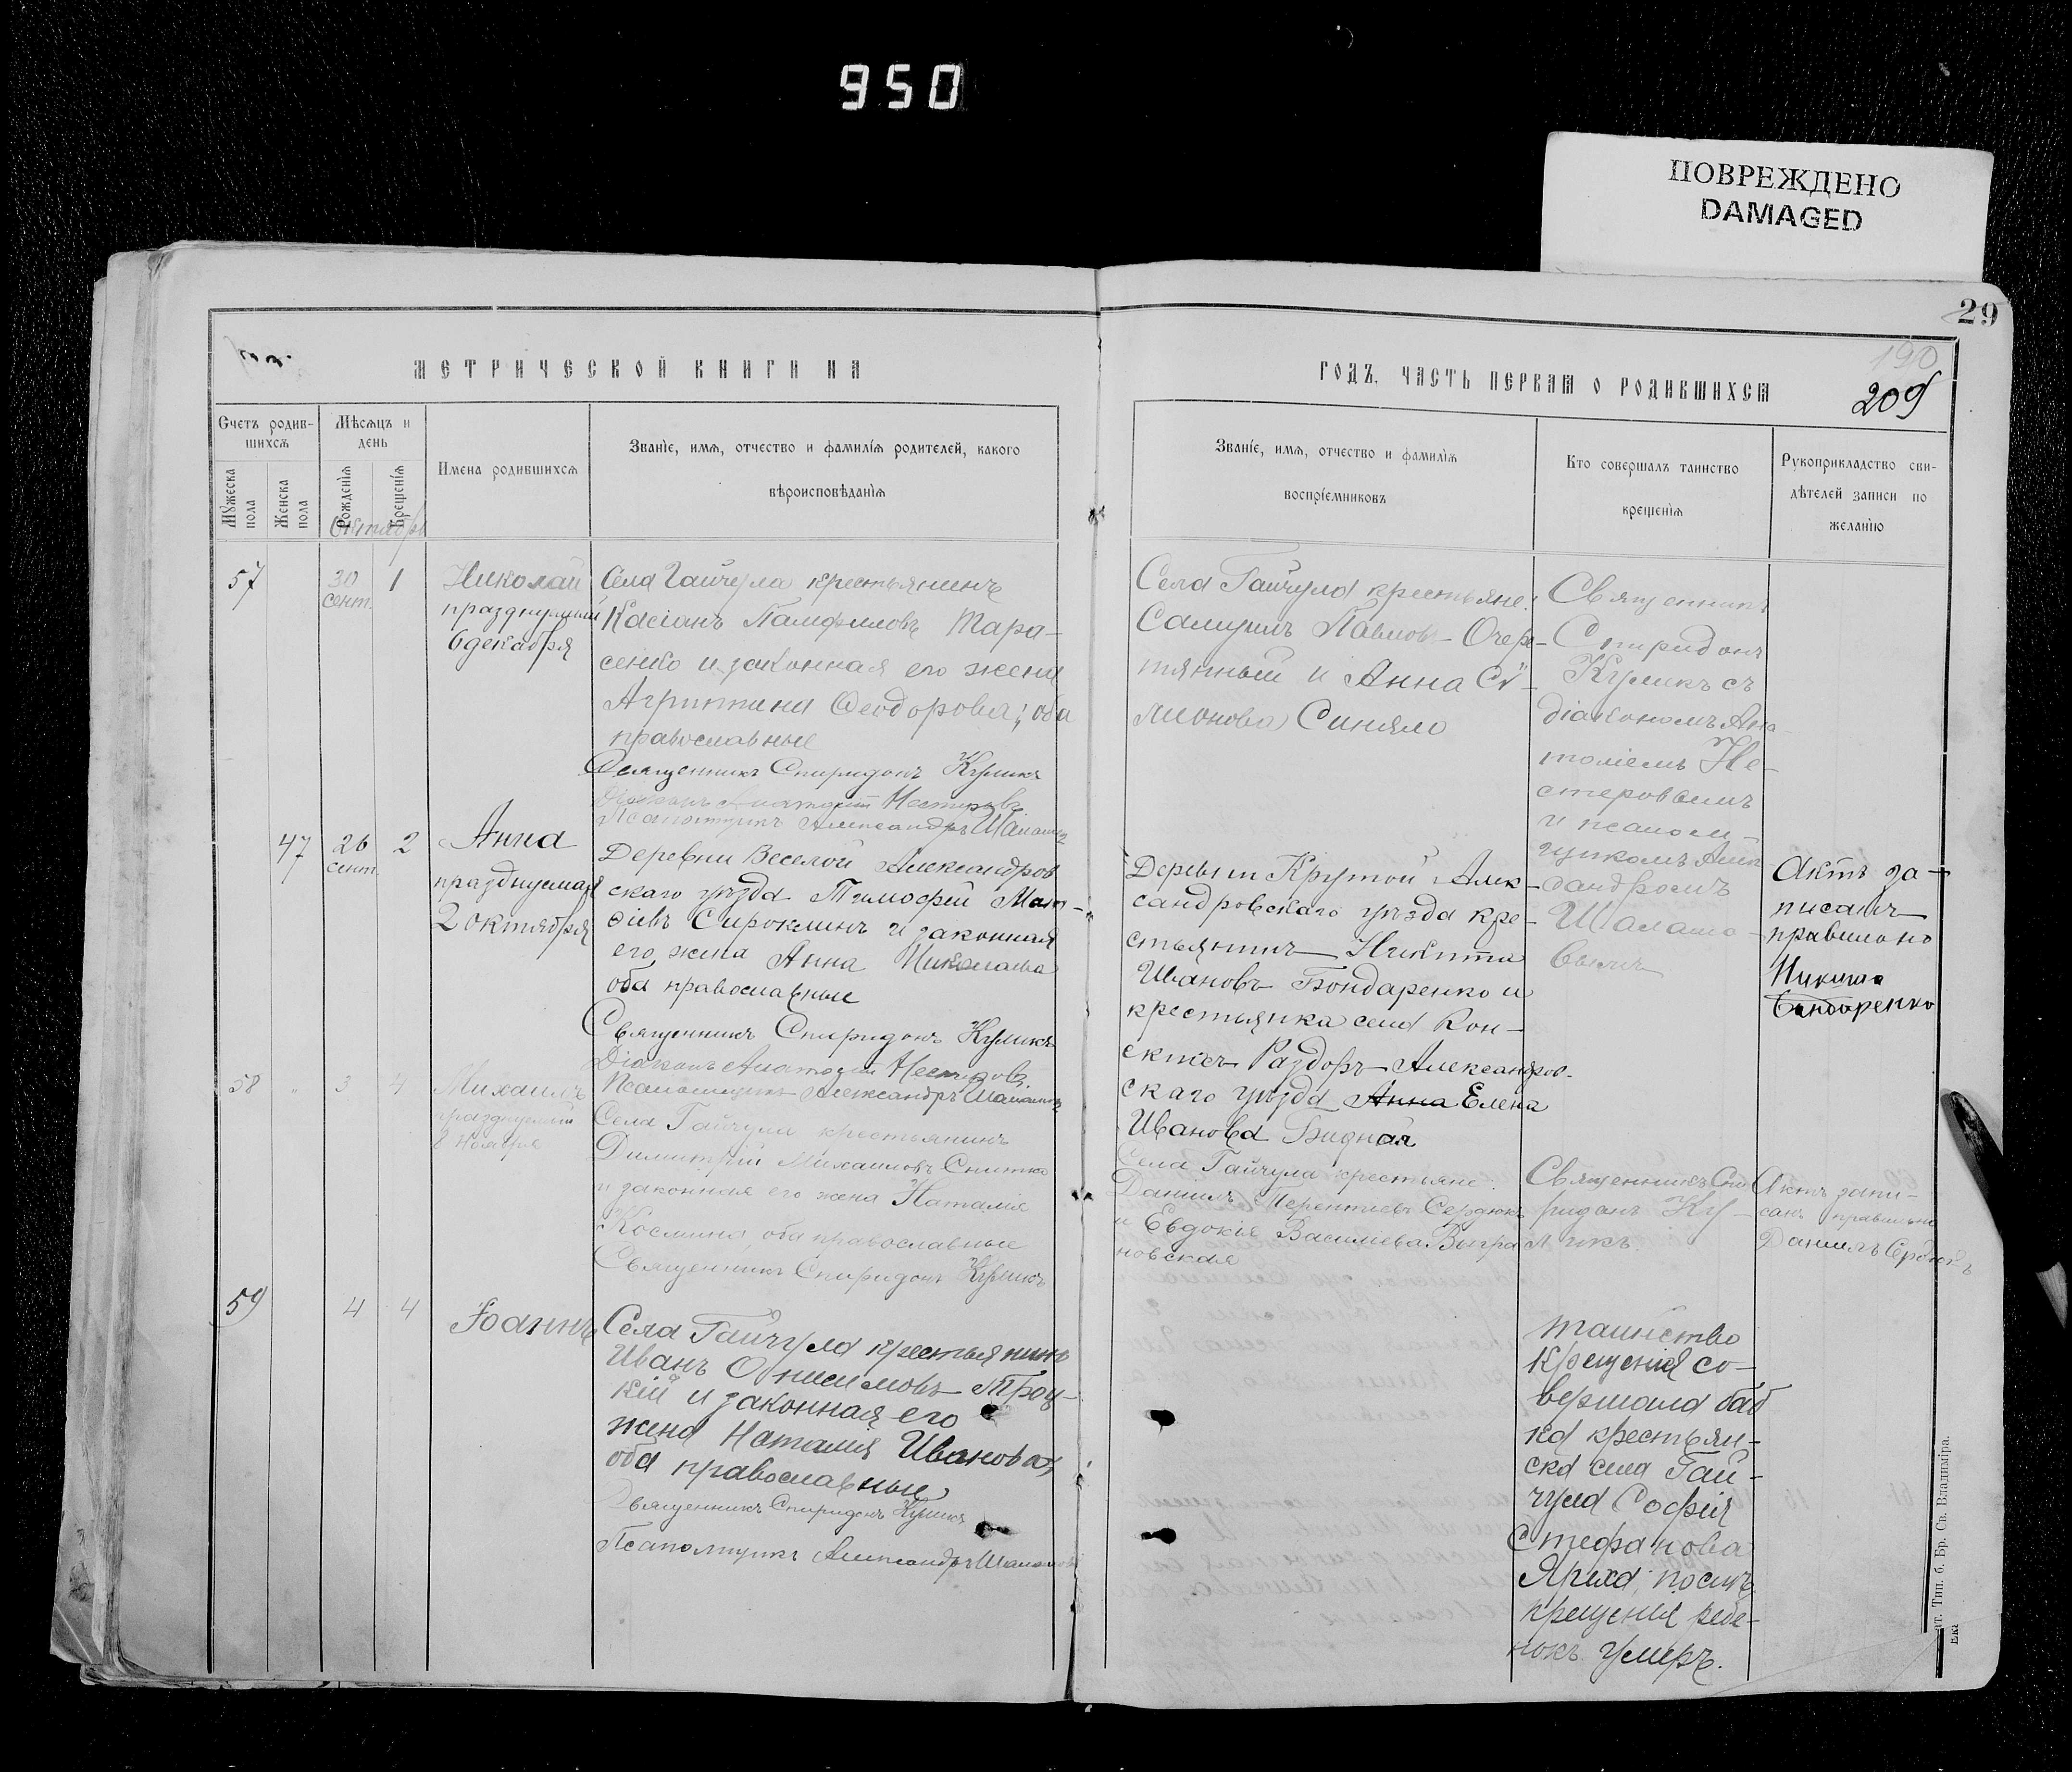 950
ПОВРЕЖДЕНО
DAMAGED
29
190
209
МЕТРИЧЕСКОЙ КНИГИ НА
ГОДЪ, ЧАСТЬ ПЕРВАЯ О РОДИВШИХСЯ
Счетъ родив-
шихся
Мужеска
пола
Женска
пола
Мѣсяцъ и
день
Рожденія
Крещенія
Октябрь
Имена родившихся
Званіе, имя, отчество и фамилія родителей, какого
вѣроисповѣданія
Званіе, имя, отчество и фамилія
воспріемниковъ
Кто совершалъ таинство
крещенія
Рукоприкладство сви-
дѣтелей записи по
желанію
57
30
сент.
1
Николай
празднуемый
6 декабря
Села Гайчула крестьянинъ
Касіанъ Памфиловъ Тара-
сенко и законная его жена
Агриппина Феодорова; оба
православные
Священникъ Спиридонъ Куликъ
Діаконъ Анатолій Нестеровъ
Псаломщикъ Александръ
Села Гайчула крестьяне:
Самуилъ Павловъ Очере-
тянный и Анна Сѵ-
меонова Синяло
Священникъ
Спиридонъ
Куликъ съ
діакономъ Ана-
толіемъ Не-
стеровымъ
и псалом-
щикомъ Алек-
сандромъ
Шаламо-
вымъ
47
26
сент.
2
Анна
празднуемая
2 октября
Деревни Веселой Александров
скаго уѣзда Тимофей
Сироклинъ и законная
его жена Анна Николаева
оба православные
Священникъ Спиридонъ Куликъ
Діаконъ Анатолій Нестеровъ
Псаломщикъ Александръ
Деревни Крутой Алек-
сандровскаго уѣзда кре-
стьянинъ Никита
Ивановъ Бондаренко и
крестьянка села Кон-
скихъ Раздоръ Александров-
скаго уѣзда Анна Елена
Иванова Бидная
Актъ за-
писанъ
правильно
Никита
Бондаренко
58
3
4
Михаилъ
празднуемый
8 Ноября
Села Гайчула крестьянинъ
Димитрій Михаиловъ Снитко
и законная его жена Наталія
Космина оба православные
Священникъ Спиридонъ Куликъ
Села Гайчула крестьяне:
Даніилъ Терентіевъ Сердюкъ
и Евдокія Васильева Выгра
новская
Священникъ Спи
ридонъ Ку-
ликъ.
Актъ запи-
санъ правильно
Даніилъ Сердюкъ
59
4
4
Іоаннъ
Села Гайчула крестьянинъ
Иванъ Онисимовъ Троц-
кій и законная его
жена Наталія Иванова;
оба православные
Священникъ Спиридонъ Куликъ
Псаломщикъ Александръ
таинство
крещенія со-
вершала баб
ка крестьян-
ска села Гай-
чула Софія
Стефанова
послѣ
крещенія ребе-
нокъ умеръ.
ат. Тип. б. Бр. Св. Владиміра.
Ека